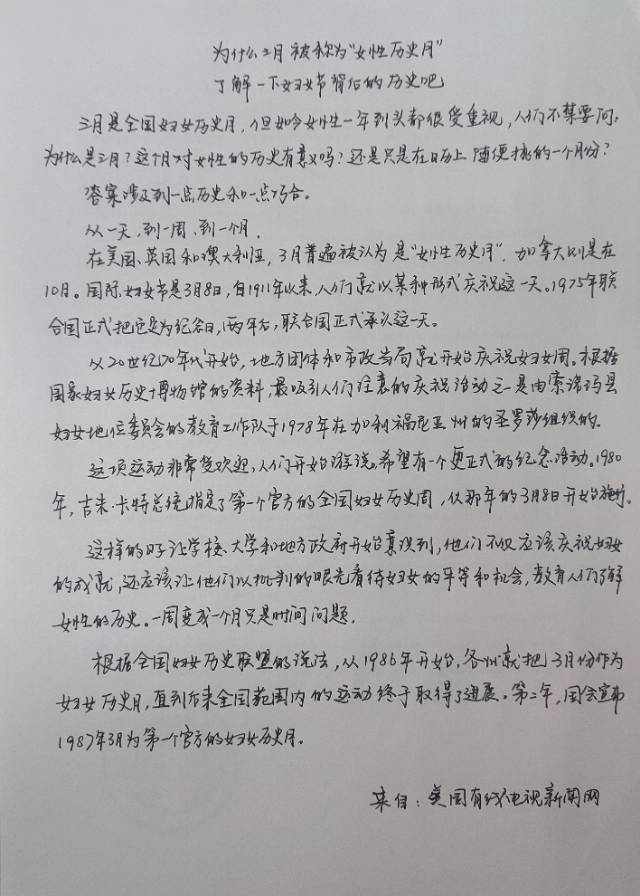 为什么三月被称为“女性历史月”
了解一下妇女节背后的历史吧
三月是全国妇女历史月,但如今女性一年到头都很受重视,人们不禁要问:
为什么是三月?这个月对女性的历史有意义吗?还是只是在日历上随便挑的一个月份?
答案涉及到一点历史和一点巧合。
从一天,到一周,到一个月.
在美国、英国和澳大利亚,3月普遍被认为是“女性历史月”,加拿大则是在
10月。国际妇女节是3月8日,自1911年以来,人们就以某种形式庆祝这一天。1975年联
合国正式把它定为纪念日,两年后,联合国正式承认这一天。
从20世纪70年代开始,地方团体和市政当局就开始庆祝妇女周。根据
国家妇女历史博物馆的资料,最吸引人们注意的庆祝活动之一是由索诺玛县
妇女地位委员会的教育工作队于1978年在加利福尼亚州的圣罗莎组织的.
这项运动非常受欢迎,人们开始游说,希望有一个更正式的纪念活动.1980
年,吉米·卡特总统指定了第一个官方的全国妇女历史周,从那年的3月8日开始施行.
这样的呼让学校、大学和地方政府开始意识到,他们不仅应该庆祝妇女
的成就,还应该让他们以批判的眼光看待妇女的平等和机会,教育人们了解
女性的历史.一周变成一个月只是时间问题.
根据全国妇女历史联盟的说法,从1986年开始,各州就把3月份作为
妇女历史月,直到后来全国范围内的运动终于取得了进展。第二年,国会宣布
1987年3月为第一个官方的妇女历史月.
来自:美国有线电视新闻网